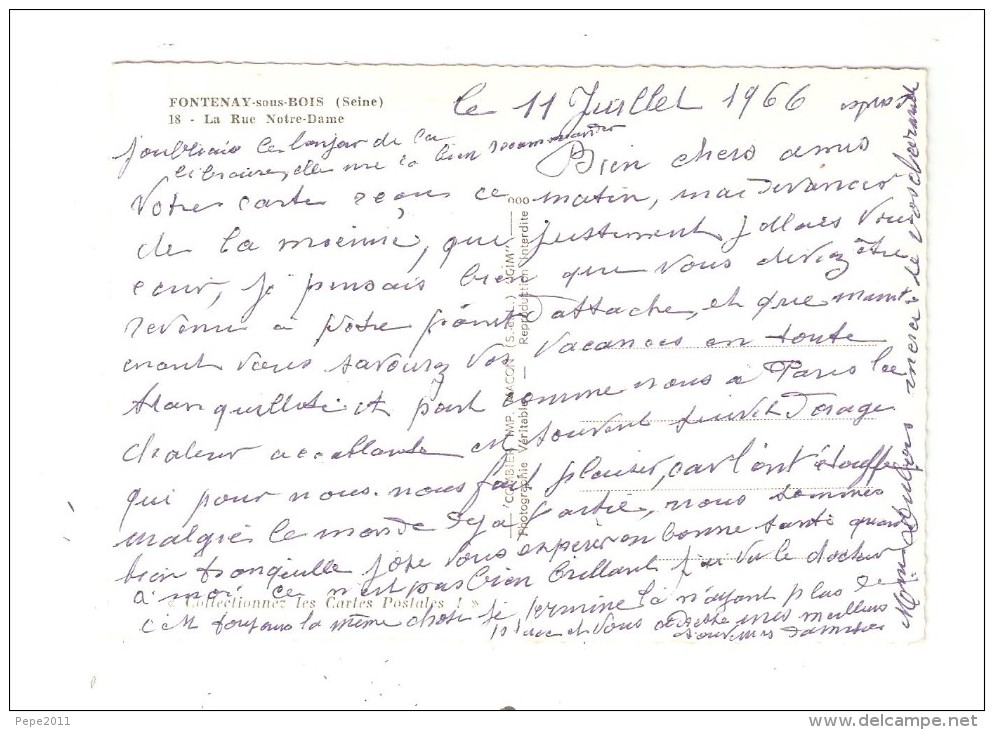 FONTENAY-sous-BOIS (Seine)
18 - La Rue Notre-Dame
le 11 Juillet 1966
joubliais le bonjour de la
libraire, elle me la bien recommander
Bien chers amis
Votre carte reçus ce matin, ma devancé
de la moenne, que justement j allais vous
ecrir, je pensais bien que vous deviez être
revenu a votre point d'attache, et que maint
enant vous savourez vos vacances en toute
tranquillité et pour comme nous a Paris la
chaleur accablante et souvent suivit d'orage
qui pour nous. nous fait plaisir, car l'ont étouffe
malgrés le monde déja partie, nous sommes
bien tranquille jose vous esperer en bonne santé quan
a moi ce n'est pas bien brillant j'ai vu le docteur
c'est toujours la même chose je termine la n'ayant plus de
place et vous adresse mes meilleurs
souvenirs
merci de vos
« Collectionnez les Cartes Postales ! »
"COMBIER" IMP. MACON (S.-et-L.) "CIM"
Photographie Véritable — Reproduction Interdite
Pepe2011
www.delcampe.net